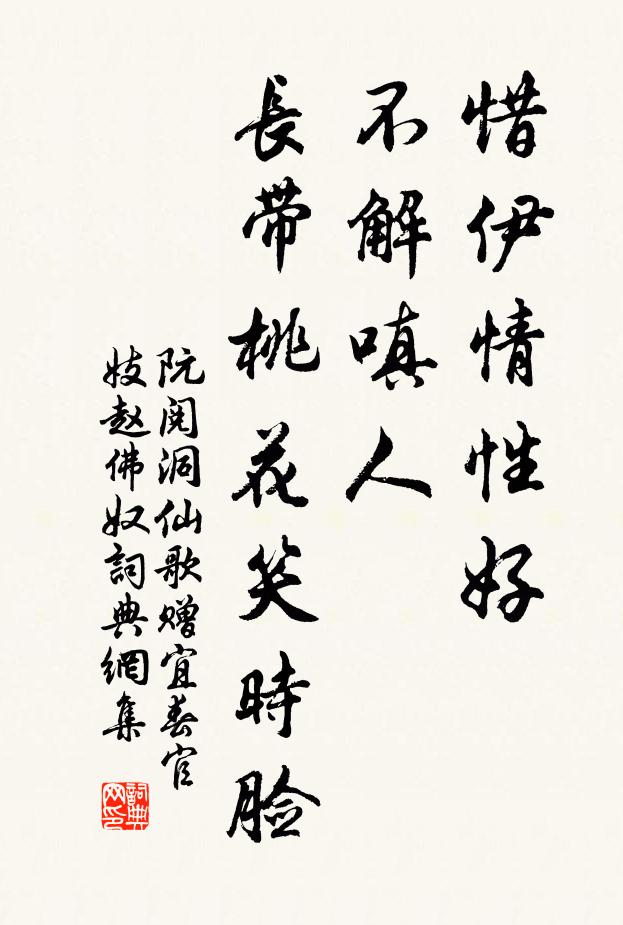 惜伊情性好
不解嗔人
長带桃花笑時脸
阮阅洞仙歌赠宜春官
妓赵佛奴詞典網集
詞典
网印